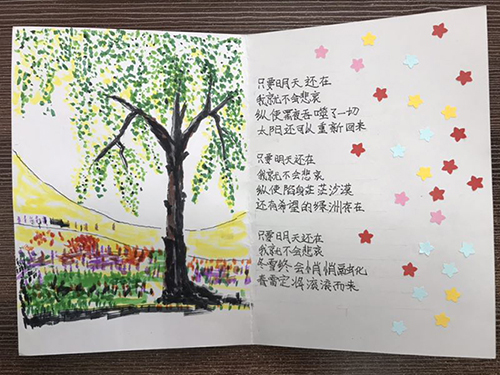 只要明天还在
我就不会悲哀
纵使黑夜吞噬了一切
太阳还可以重新回来
只要明天还在
我就不会悲哀
纵使陷身茫茫沙漠
还有希望的绿洲存在
只要明天还在
我就不会悲哀
冬雪终会悄悄融化
春雷定将滚滚而来